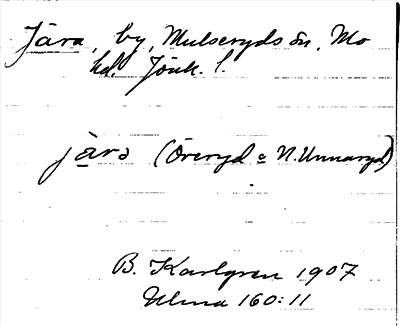 Jära, by, Mulseryds sn, Mo
hd. Jönk. l.
jàrə (Öreryd o N. Unnaryd)
B. Karlgren 1907
Ulma 160:11